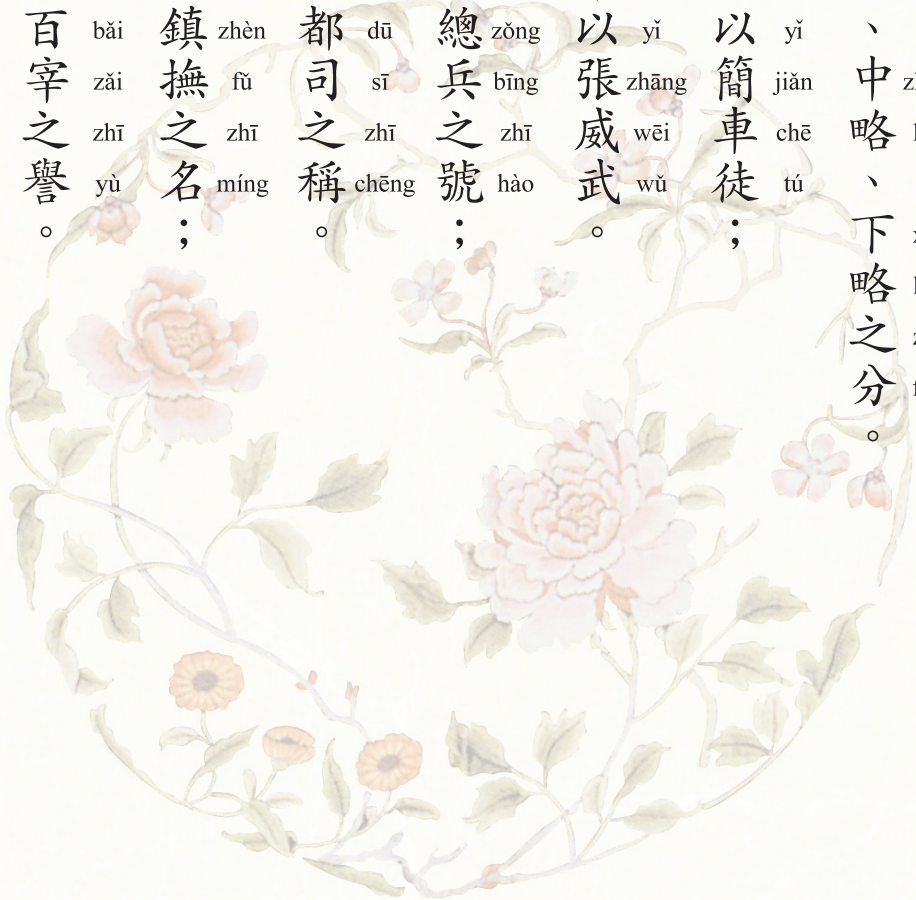 、中略、下略之分。
以簡車徒；
yǐ jiǎn chē tú
以張威武。
yǐ zhāng wēi wǔ
總兵之號；
zǒng bīng zhī hào
都司之稱。
dū sī zhī chēng
鎮撫之名；
zhèn fǔ zhī míng
百宰之譽。
bǎi zǎi zhī yù